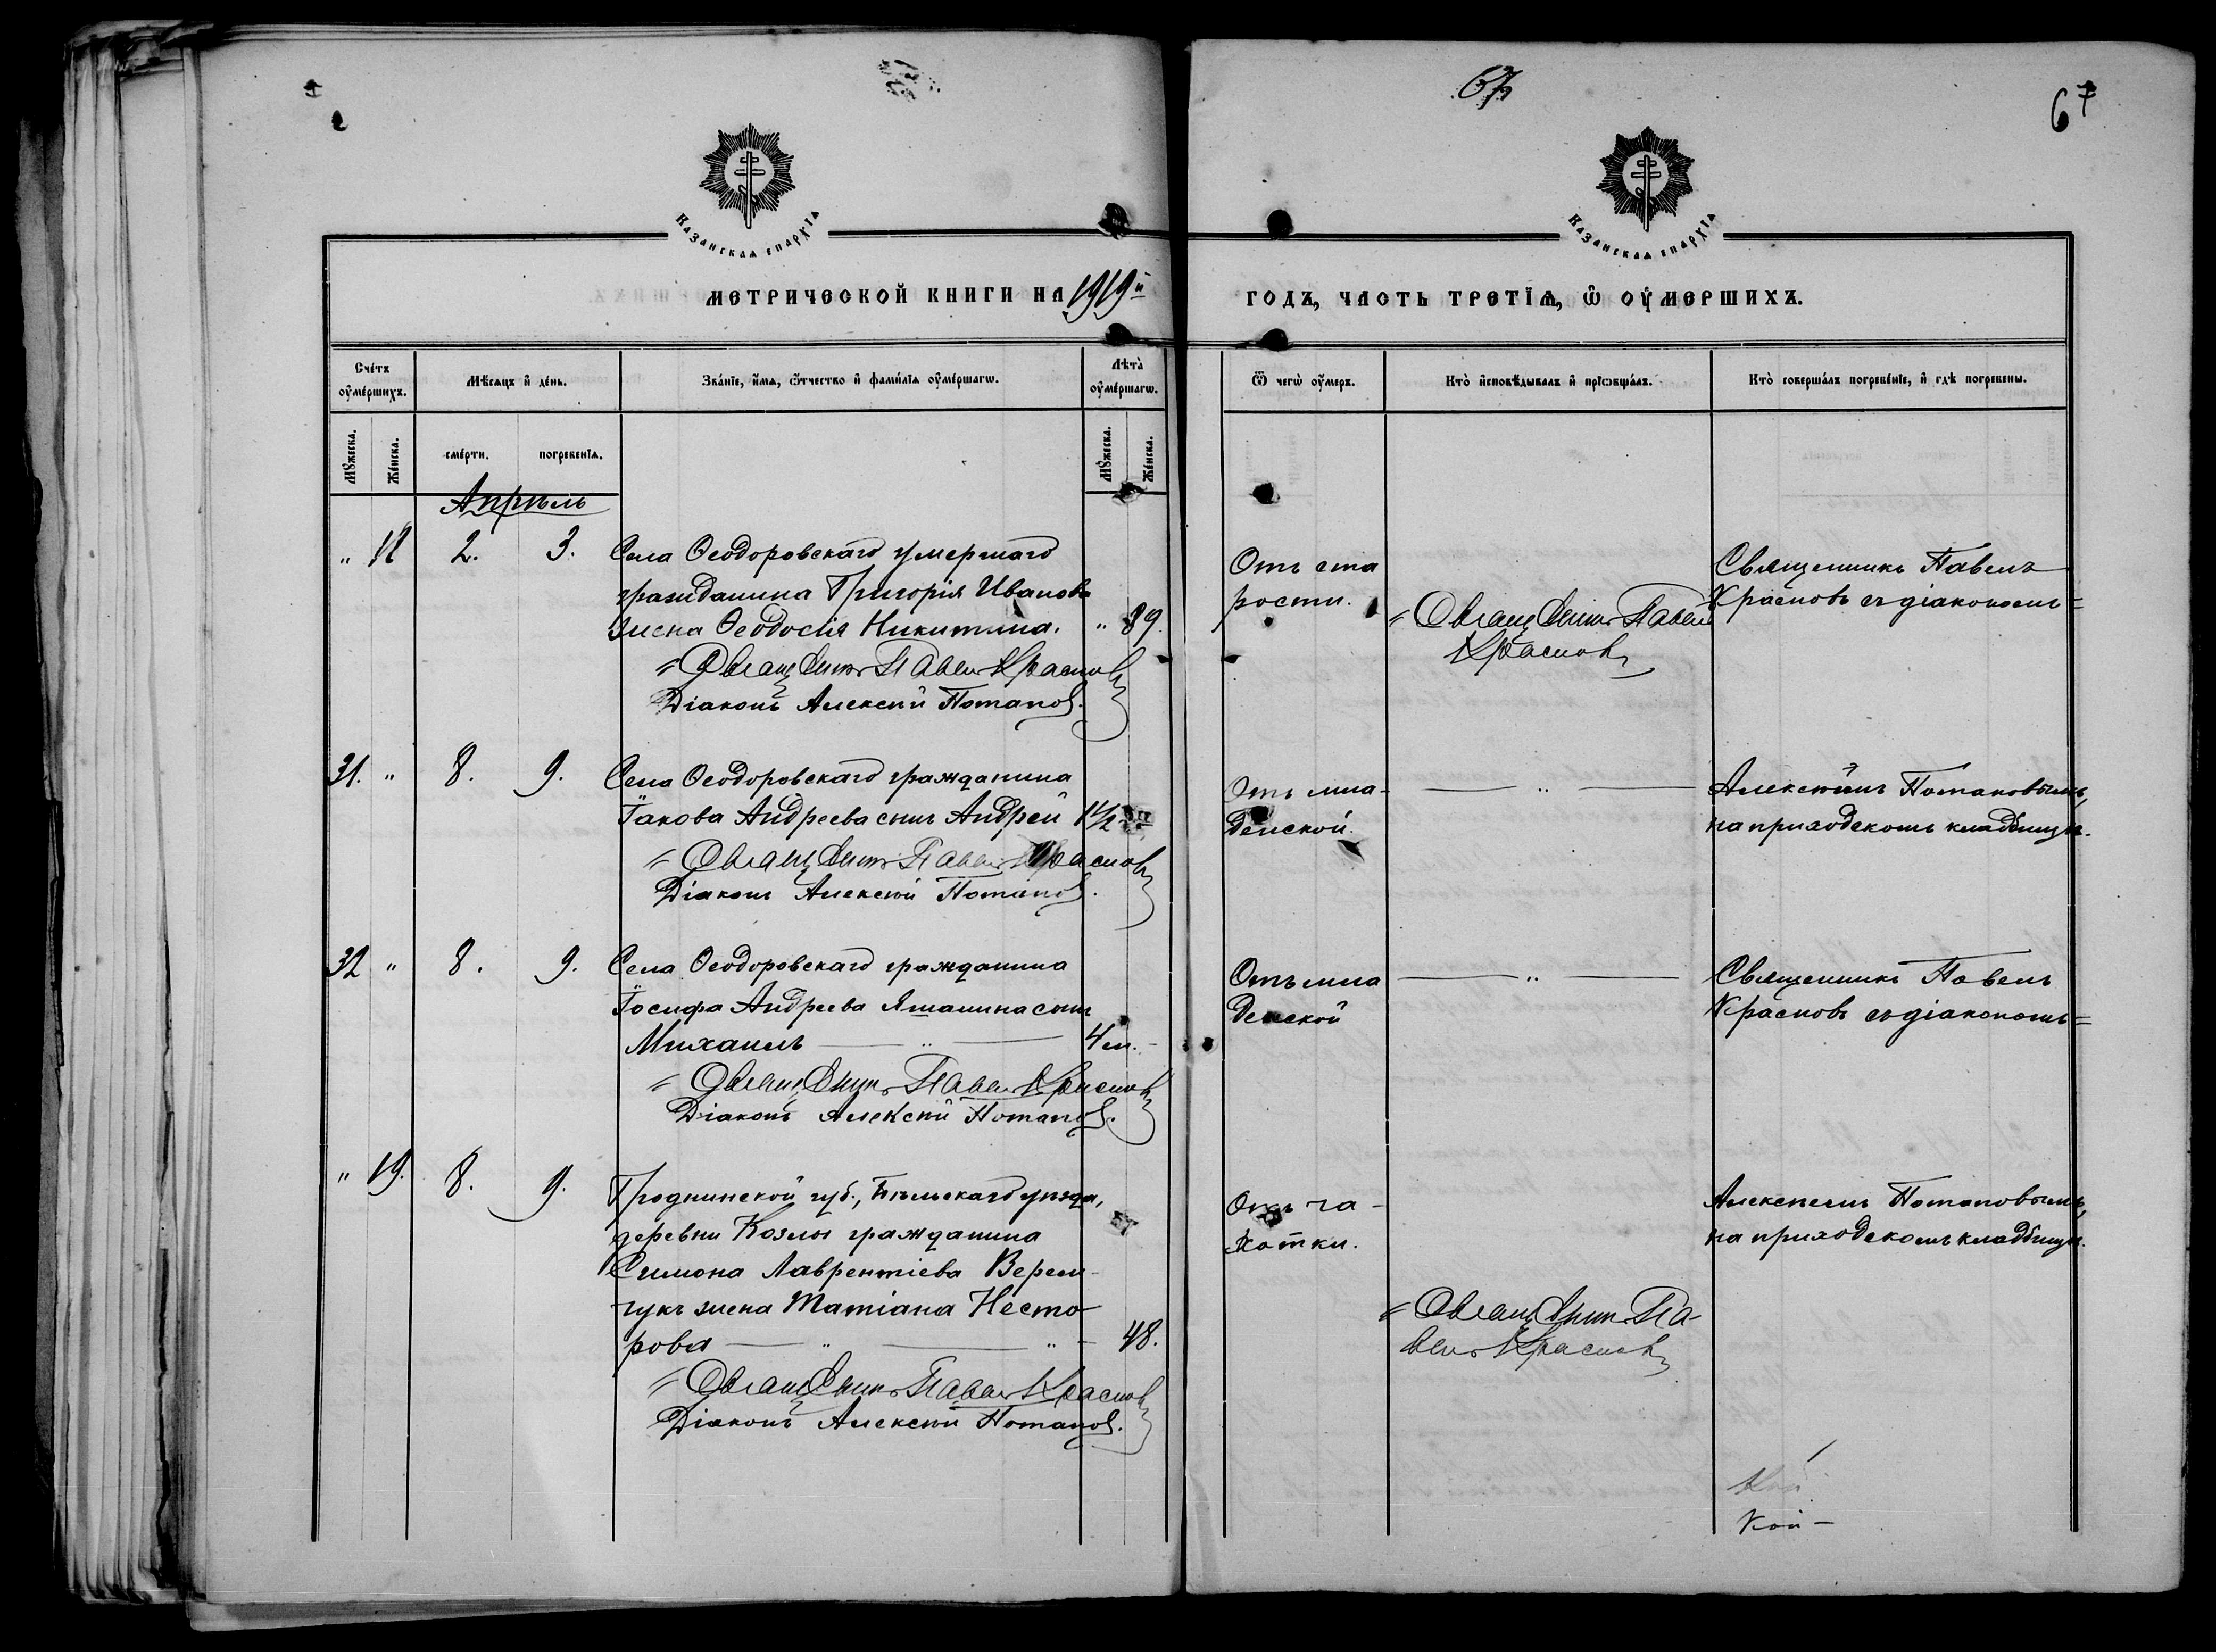 67
67
КАЗАНСКАѦ ЕПАРХЇѦ
КАЗАНСКАѦ ЕПАРХЇѦ
МЕТРИЧЕСКОЙ КНИГИ НА 1919й
ГОДЪ, ЧАСТЬ ТРЕТЇѦ, Ѽ ОУМЕРШИХЪ.
Счетъ оумершихъ.
Мѣсяцъ и день.
Званїе, имѧ, ѿчество и фамилїѧ оумершагѡ.
Лѣта оумершагѡ.
Ѿ чегѡ оумеръ.
Кто исповѣдывалъ и прїѡбщалъ.
Кто совершалъ погребенїе, и гдѣ погребены.
Мꙋжеска.
Женска.
смерти.
погребенїѧ.
Мꙋжеска.
Женска.
Апрѣль
" 18 2. 3. Села Ѳеодоровскаго умершаго
гражданина Григорія Иванова
жена Ѳеодосія Никитина. " 89.
Священникъ Павелъ Краснов
Діаконъ Алексѣй Потапов.
Отъ ста
рости.
Священникъ Павелъ
Краснов
Священникъ Павелъ
Красновъ съ діакономъ=
31. " 8. 9. Села Ѳеодоровскаго гражданина
Іакова Андреева сынъ Андрей 1½
Священникъ Павелъ Краснов
Діаконъ Алексѣй Потапов.
Отъ мла-
денской.
— " —
Алексѣемъ Потаповымъ,
на приходскомъ кладбищѣ.
32 " 8. 9. Села Ѳеодоровскаго гражданина
Іосифа Андреева Яшанина сынъ
Михаилъ — " — 4 м. -
Священникъ Павелъ Краснов
Діаконъ Алексѣй Потапов.
Отъ мла
денской
— " —
Священникъ Павелъ
Красновъ съ діакономъ=
" 19. 8. 9. Гроднинской губ., Бѣльскаго уѣзда,
деревни Козлы гражданина
Симона Лаврентіева Верем-
чукъ жена Татіана Несто-
рова — " — " - 48.
Священникъ Павелъ Краснов
Діаконъ Алексѣй Потапов.
Отъ ча-
хотки.
Священникъ Па-
велъ Краснов
Алексѣемъ Потаповымъ,
на приходскомъ кладбищѣ.
Кой-